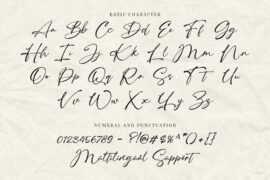 BASIC CHARACTER
Aa Bb Cc Dd Ee Ff Gg
Hh Ii Jj Kk Ll Mm Nn
Oo Pp Qq Rr Ss Tt Uu
Vv Ww Xx Yy Zz
NUMERAL AND PUNCTUATION
0123456789 - ?!@#$%^"()+[]
Multilingual Support